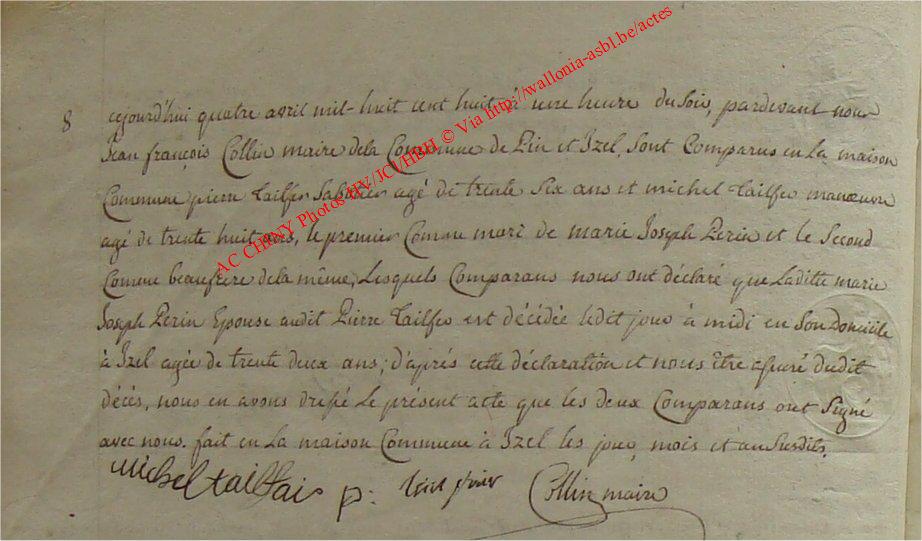 8 cejourd'hui quatre avril mil-huit cent huit à une heure du soir, pardevant nous
Jean françois Collin maire dela Commune de Pin et Izel, sont Comparus en La maison
Commune pierre Tailfer Sabotier agé de trente Six ans et michel Tailfer manœuvre
agé de trente huit ans, le premier Comme mari de marie Joseph Perin et le Second
Comme beaufrere dela même, Lesquels Comparans nous ont déclaré que Laditte marie
Joseph Perin Epouse audit Pierre Tailfer est décédée ledit jour à midi en Son Domicile
à Izel agée de trente deux ans; d'après cette déclaration et nous être assuré dudit
décès, nous en avons dressé Le présent acte que les deux Comparans ont Signé
avec nous. fait en La maison Commune à Izel les jour, mois et an Susdits.
Michel taillfais p: Collin maire
AC CHINY Photos HV/JCI/HBH © Via http://wallonia-asbl.be/actes